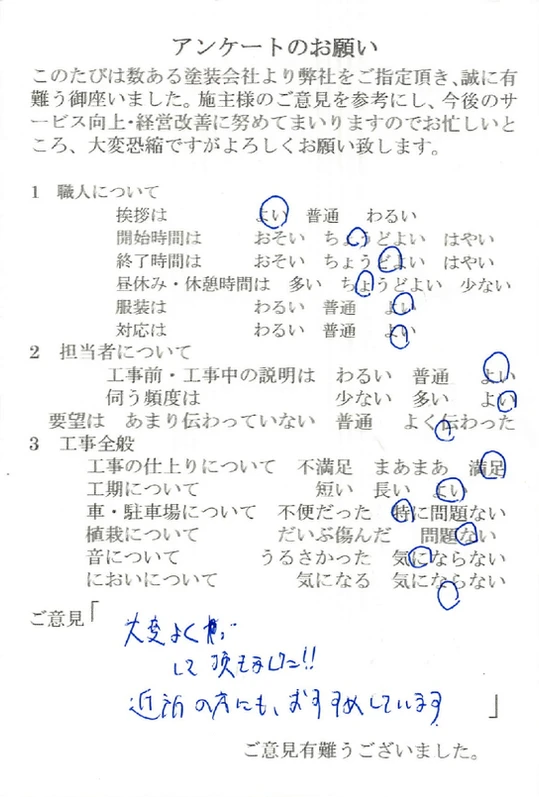 アンケートのお願い
このたびは数ある塗装会社より弊社をご指定頂き、誠に有
難う御座いました。施主様のご意見を参考にし、今後のサ
ービス向上・経営改善に努めてまいりますのでお忙しいと
ころ、大変恐縮ですがよろしくお願い致します。
1 職人について
挨拶は よい 普通 わるい
開始時間は おそい ちょうどよい はやい
終了時間は おそい ちょうどよい はやい
昼休み・休憩時間は 多い ちょうどよい 少ない
服装は わるい 普通 よい
対応は わるい 普通 よい
2 担当者について
工事前・工事中の説明は わるい 普通 よい
伺う頻度は 少ない 多い よい
要望は あまり伝わっていない 普通 よく伝わった
3 工事全般
工事の仕上りについて 不満足 まあまあ 満足
工期について 短い 長い よい
車・駐車場について 不便だった 特に問題ない
植栽について だいぶ傷んだ 問題ない
音について うるさかった 気にならない
においについて 気になる 気にならない
ご意見「
大変よく
して頂きました!!
近所の方にも、おすすめしています
」
ご意見有難うございました。